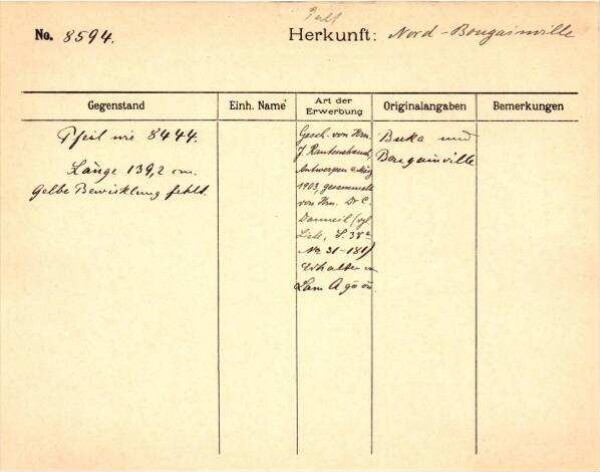 No. 8594.
Herkunft: Nord-Bougainville
Gegenstand
Einh. Name
Art der Erwerbung
Originalangaben
Bemerkungen
Pfeil wie 8444.
Länge 139,2 cm.
Gelbe Bewicklung fehlt.
Gesch. von Hrn.
J. Rautenstrauch,
Antwerpen, März
1903, gesammelt
von Hrn. Dr. C.
Danneil (vgl.
Liste, S. 38a
No. 31-181)
Erhalten
Buka und
Bougainville